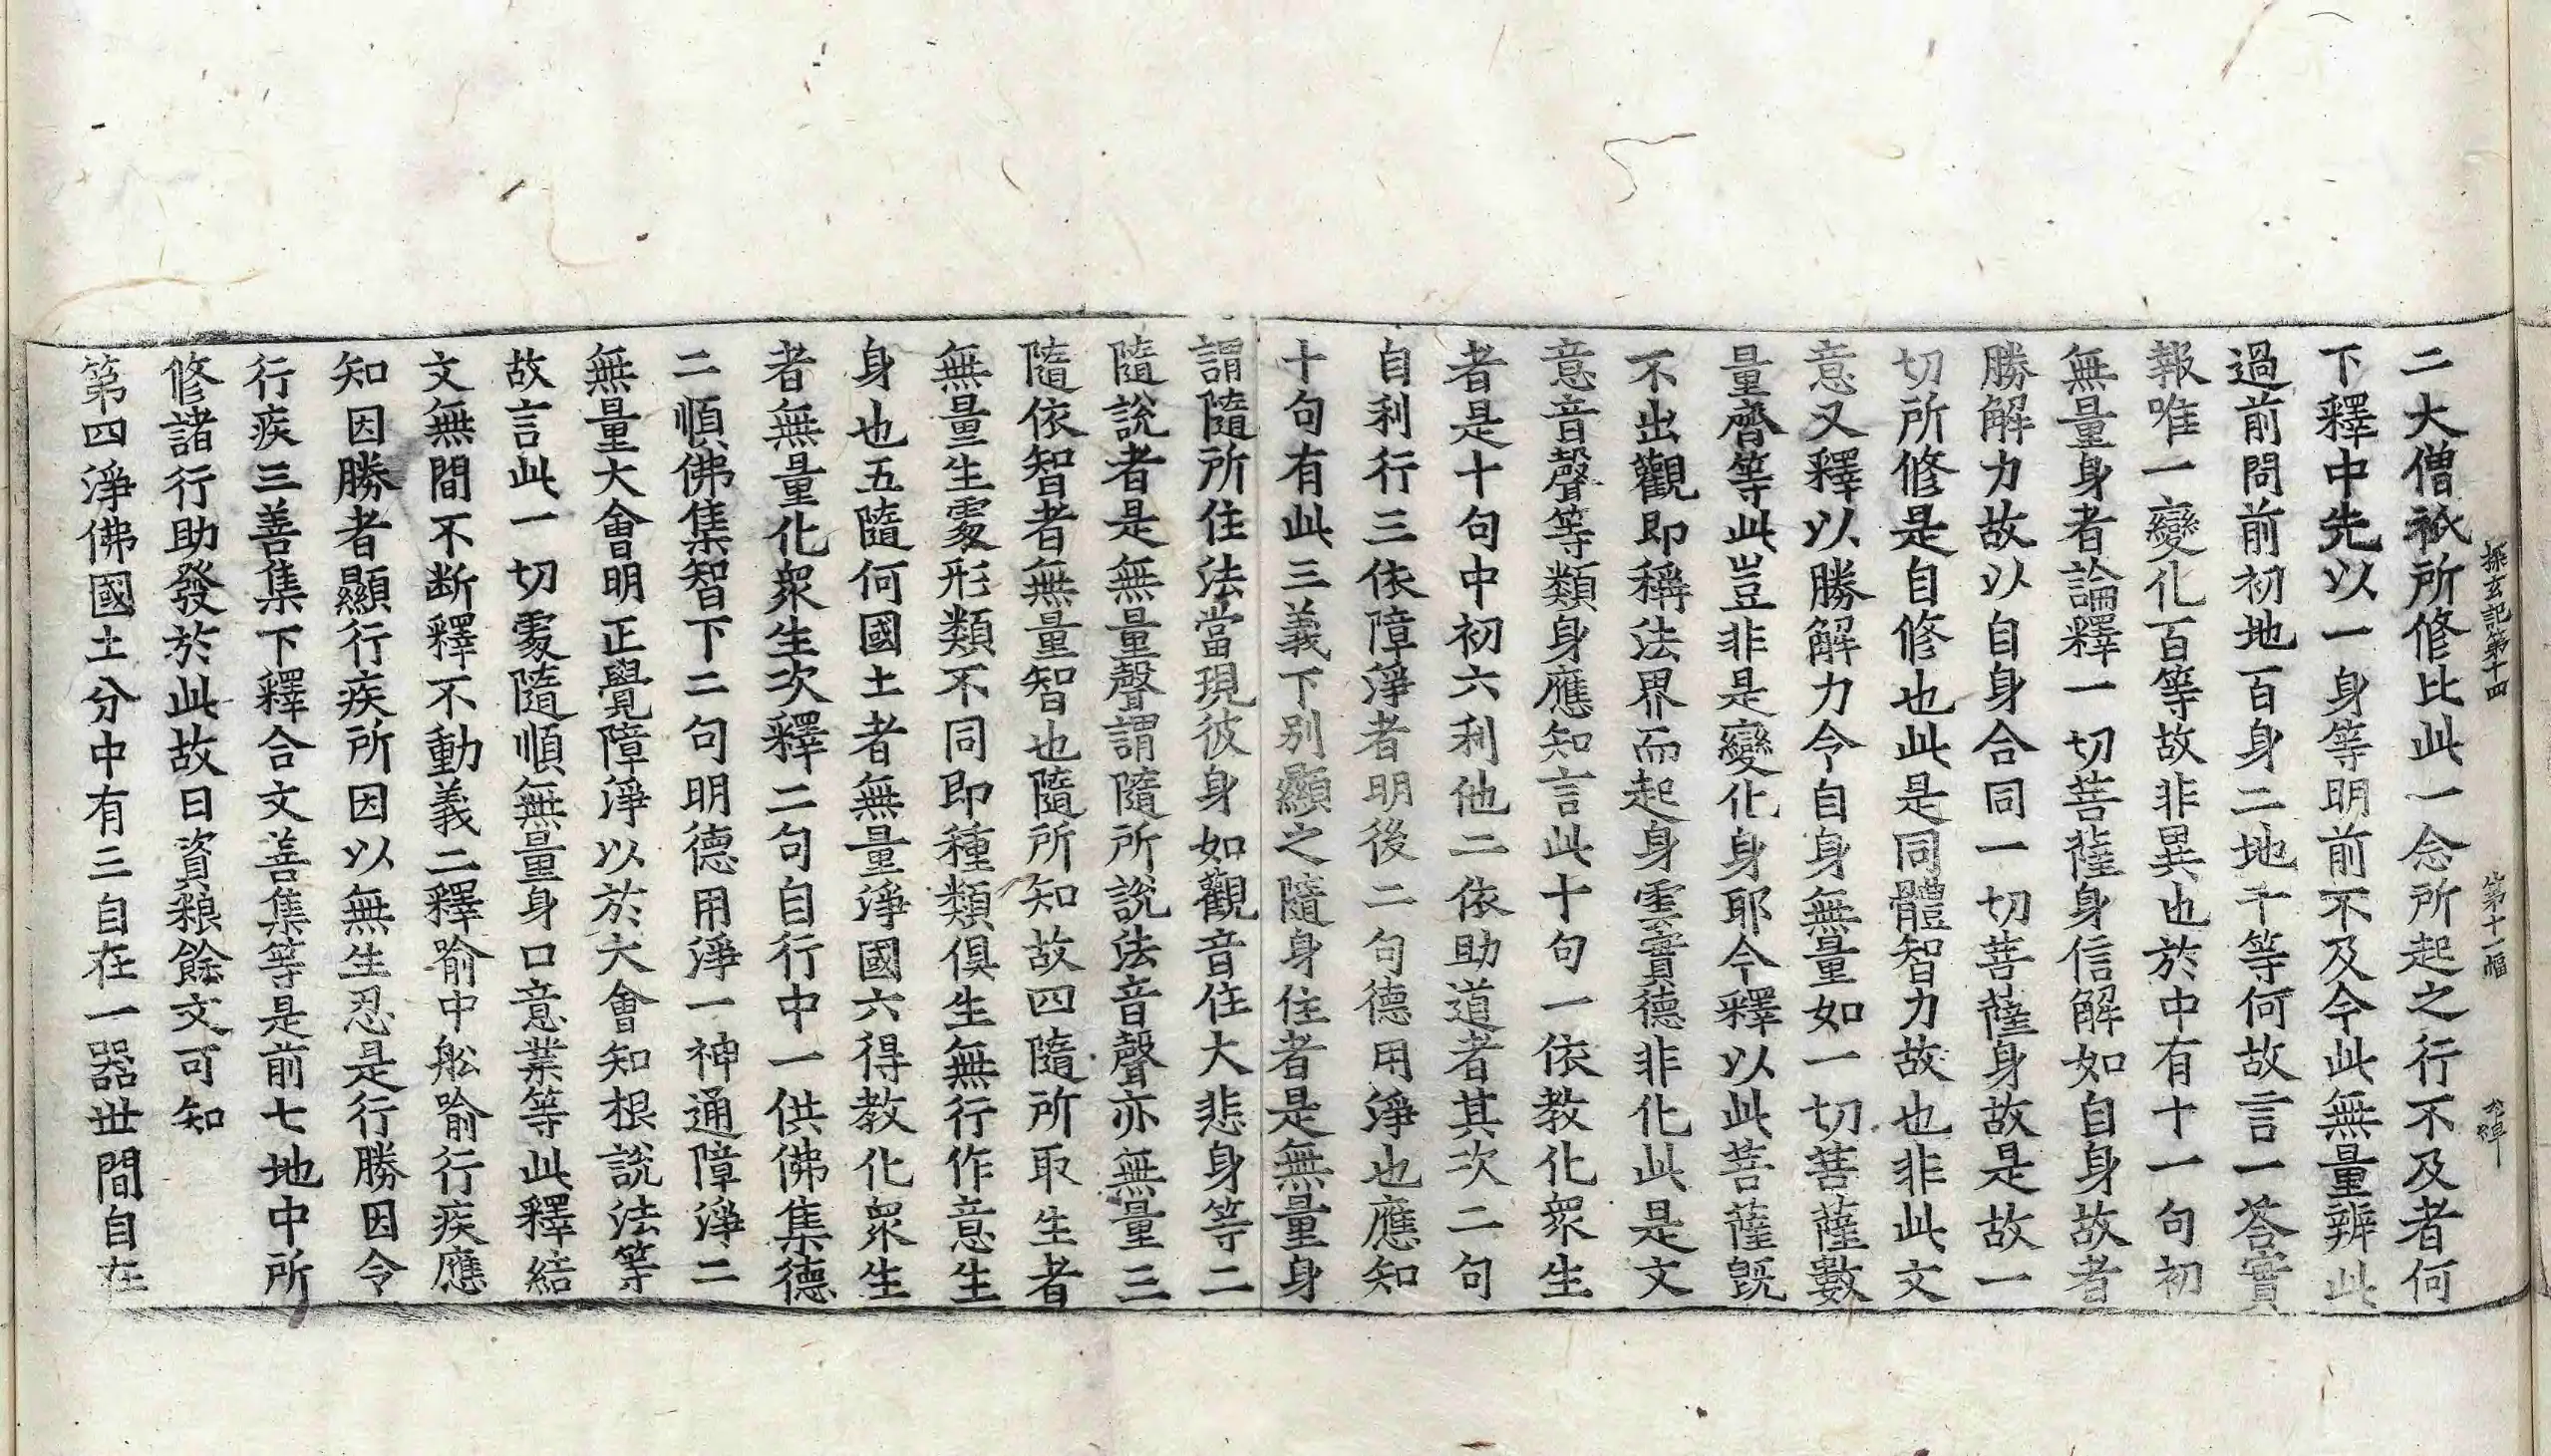 探玄記第十四 第十一幅
二大僧祇所修比此一念所起之行不及者何
下釋中先以一身等明前不及今此無量辨此
過前問前初地百身二地千等何故言一荅實
報唯一變化百等故非異也於中有十一句初
無量身者論釋一切菩薩身信解如自身故者
勝解力故以自身合同一切菩薩身故是故一
切所修是自修也此是同體智力故也非此文
意又釋以勝解力令自身無量如一切菩薩數
量齊等此豈非是變化身耶今釋以此菩薩旣
不出觀即稱法界而起身雲實德非化此是文
意音聲等類身應知言此十句一依教化衆生
者是十句中初六利他二依助道者其次二句
自利行三依障淨者明後二句德用淨也應知
十句有此三義下別顯之隨身住者是無量身
謂隨所住法當現彼身如觀音住大悲身等二
隨說者是無量聲謂隨所說法音聲亦無量三
隨依智者無量智也隨所知故四隨所取生者
無量生處形類不同即種類俱生無行作意生
身也五隨何國土者無量淨國六得教化衆生
者無量化衆生次釋二句自行中一供佛集德
二順佛集智下二句明德用淨一神通障淨二
無量大會明正覺障淨以於大會知根說法等
故言此一切處隨順無量身口意業等此釋結
文無間不断釋不動義二釋喻中舩喻行疾應
知因勝者顯行疾所因以無生忍是行勝因令
行疾三善集下釋合文善集等是前七地中所
修諸行助發於此故曰資粮餘文可知
第四淨佛國土分中有三自在一器世間自在